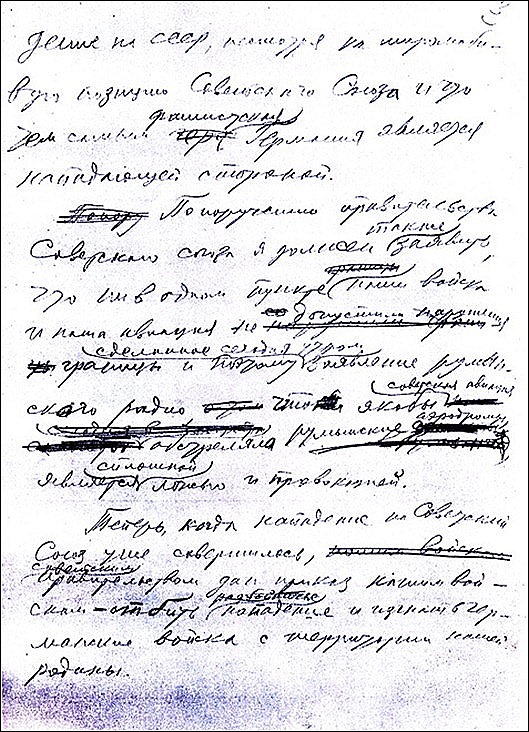 дение на СССР, несмотря на миролюби-
вую позицию Советского Союза и что
тем самым фашистская Германия является
нападающей стороной.
По поручению правительства
Советского союза я должен также заявить,
что ни в одном пункте наши войска
и наша авиация не допустили нарушения
границы и поэтому сделанное сегодня утром заявление румын-
ского радио что якобы советская авиация
обстреляла румынские аэродромы
является сплошной ложью и провокацией.
Теперь, когда нападение на Советский
Союз уже совершилось,
Советским правительством дан приказ нашим вой-
скам – отбить нападение и изгнать гер-
манские войска с территории нашей
родины.